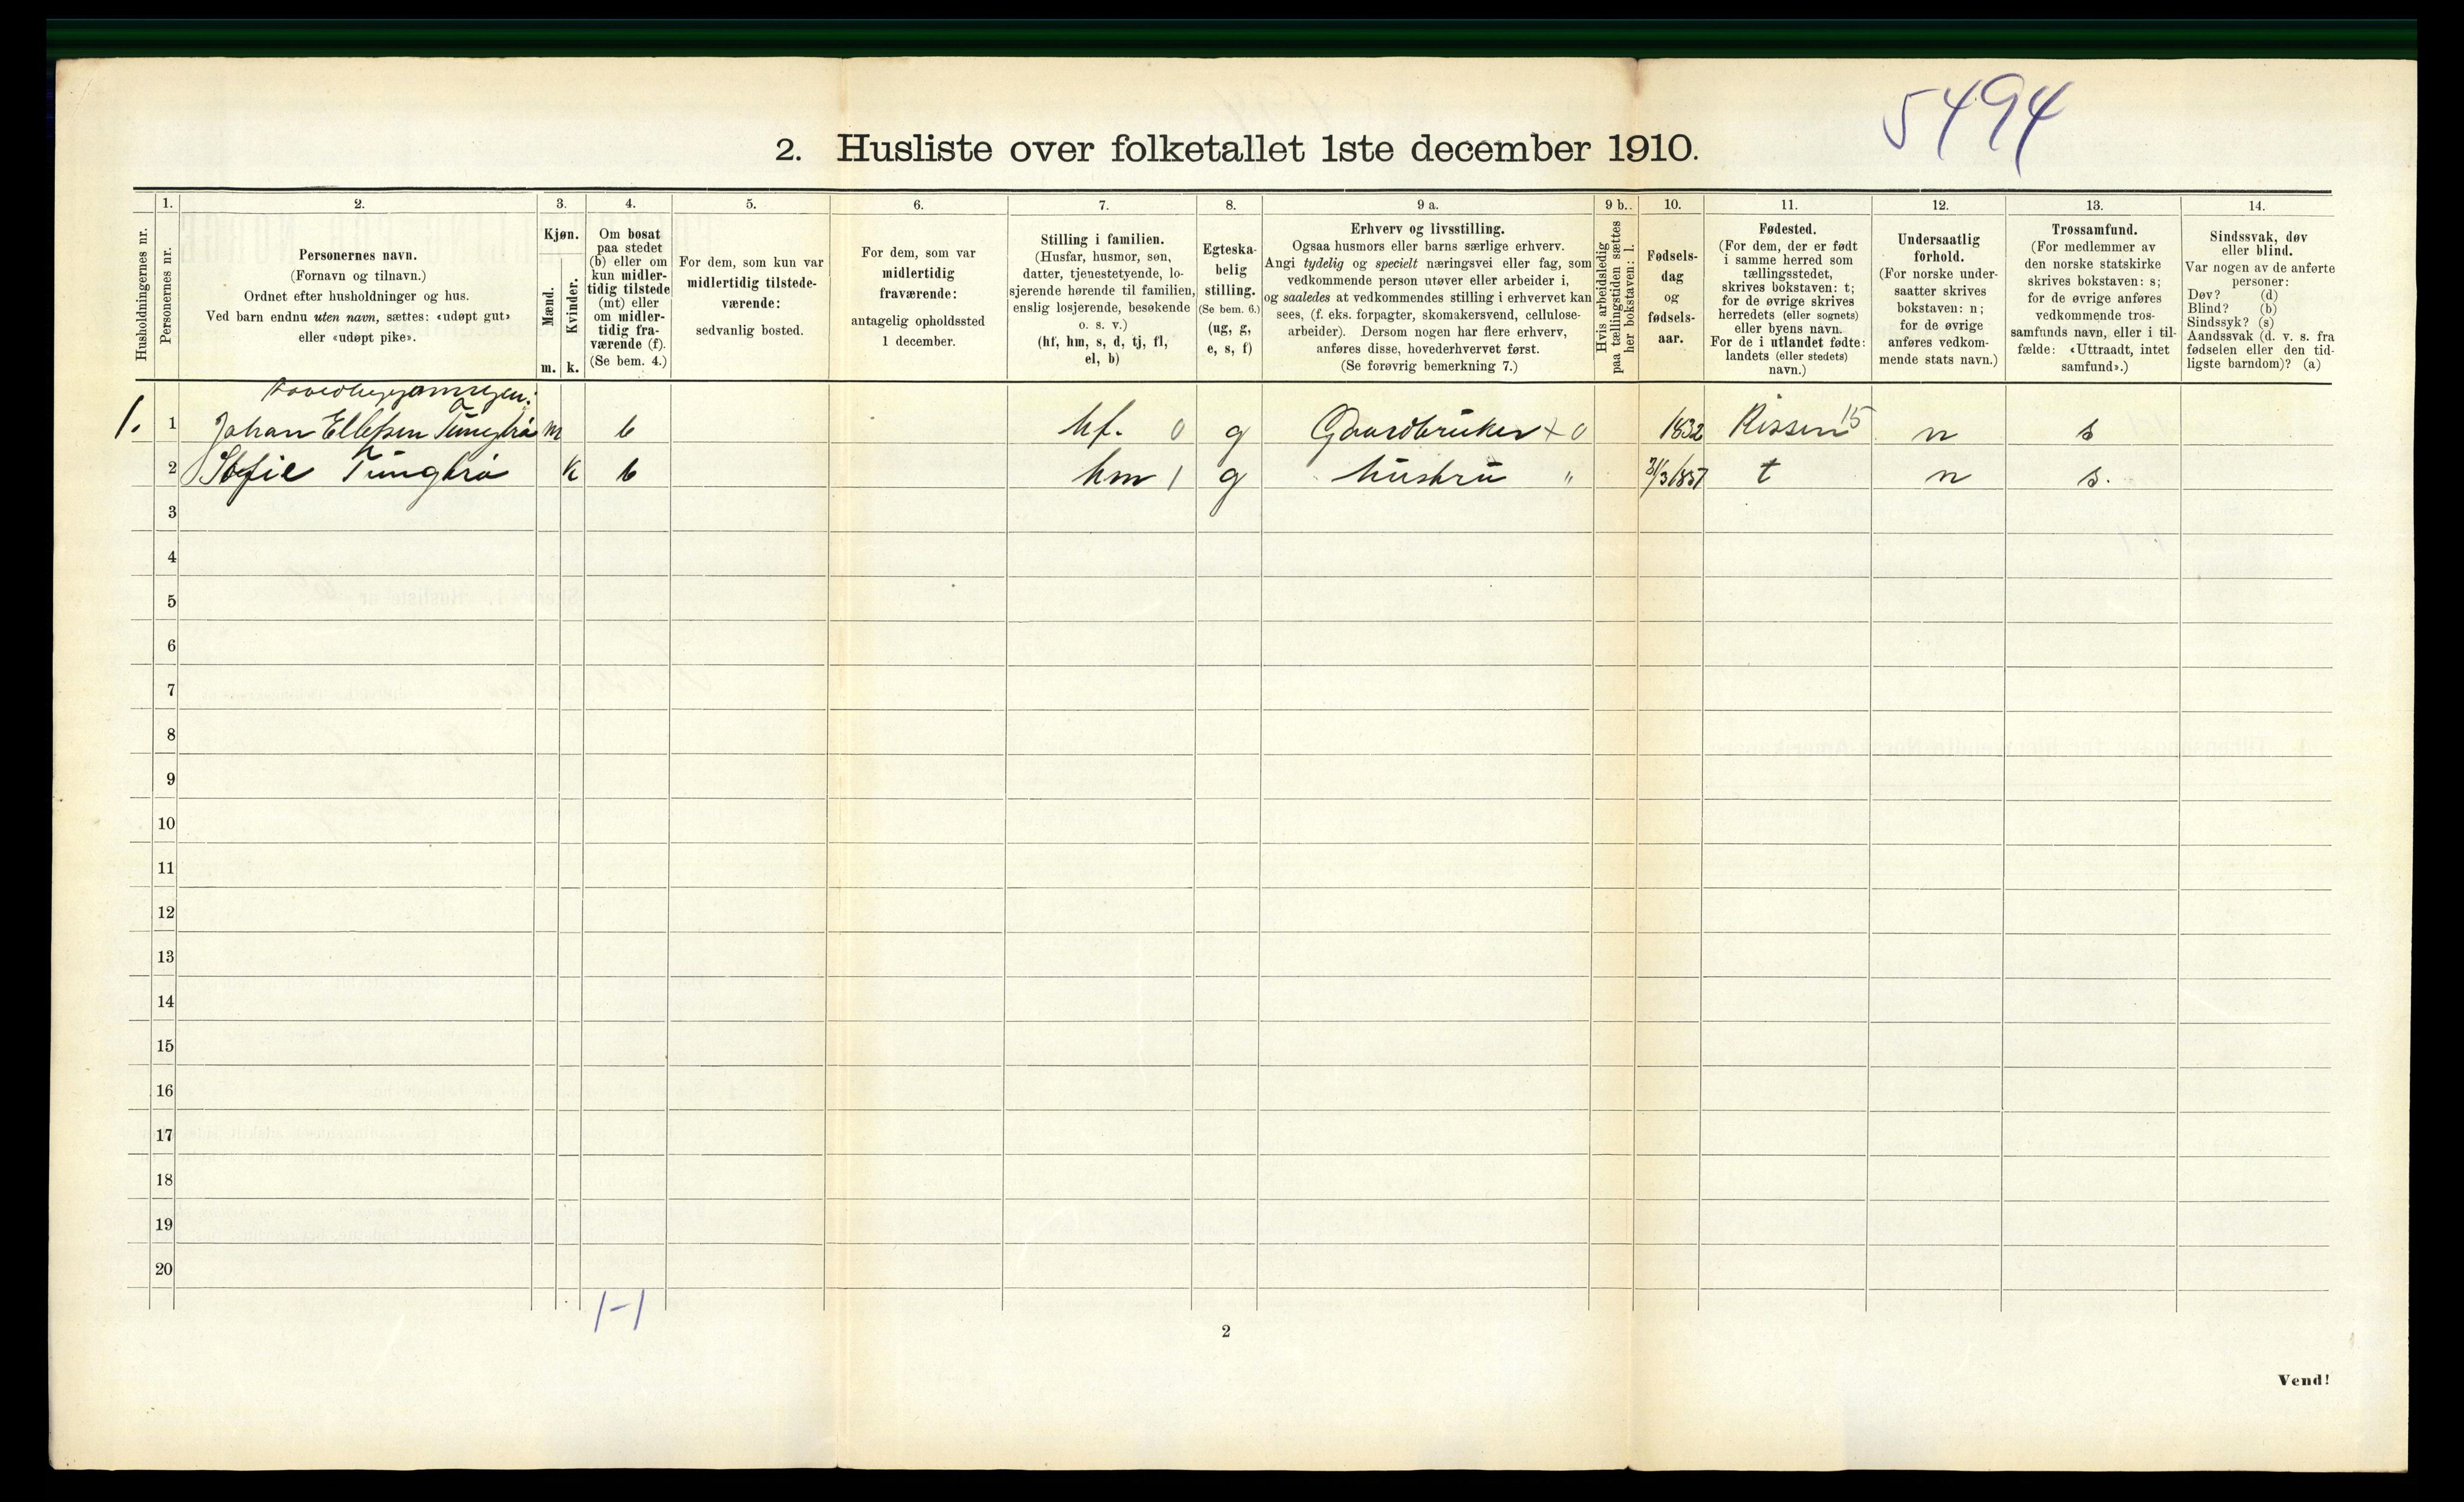 5494
2. Husliste over folketallet 1ste december 1910.
Husholdningernes nr.
1.
Personernes nr.
2.
Personernes navn.
(Fornavn og tilnavn.)
Ordnet efter husholdninger og hus.
Ved barn endnu uten navn, sættes: «udøpt gut»
eller «udøpt pike».
3.
Kjøn.
Mænd.
Kvinder.
m. k.
4.
Om bosat
paa stedet
(b) eller om
kun midler-
tidig tilstede
(mt) eller
om midler-
tidig fra-
værende (f).
(Se bem. 4.)
5.
For dem, som kun var
midlertidig tilstede-
værende:
sedvanlig bosted.
6.
For dem, som var
midlertidig
fraværende:
antagelig opholdssted
1 december.
7.
Stilling i familien.
(Husfar, husmor, søn,
datter, tjenestetyende, lo-
sjerende hørende til familien,
enslig losjerende, besøkende
o. s. v.)
(hf, hm, s, d, tj, fl,
el, b)
8.
Egteska-
belig
stilling.
(Se bem. 6.)
(ug, g,
e, s, f)
9 a.
Erhverv og livsstilling.
Ogsaa husmors eller barns særlige erhverv.
Angi tydelig og specielt næringsvei eller fag, som
vedkommende person utøver eller arbeider i,
og saaledes at vedkommendes stilling i erhvervet kan
sees, (f. eks. forpagter, skomakersvend, cellulose-
arbeider). Dersom nogen har flere erhverv,
anføres disse, hovederhvervet først.
(Se forøvrig bemerkning 7.)
9 b..
Hvis arbeidsledig
paa tællingstiden sættes
her bokstaven: l.
10.
Fødsels-
dag
og
fødsels-
aar.
11.
Fødested.
(For dem, der er født
i samme herred som
tællingsstedet,
skrives bokstaven: t;
for de øvrige skrives
herredets (eller sognets)
eller byens navn.
For de i utlandet fødte:
landets (eller stedets)
navn.)
12.
Undersaatlig
forhold.
(For norske under-
saatter skrives
bokstaven: n;
for de øvrige
anføres vedkom-
mende stats navn.)
13.
Trossamfund.
(For medlemmer av
den norske statskirke
skrives bokstaven: s;
for de øvrige anføres
vedkommende tros-
samfunds navn, eller i til-
fælde: «Uttraadt, intet
samfund».)
14.
Sindssvak, døv
eller blind.
Var nogen av de anførte
personer:
Døv? (d)
Blind? (b)
Sindssyk? (s)
Aandssvak (d. v. s. fra
fødselen eller den tid-
ligste barndom)? (a)
1. 1 Johan Ellefsen m b hf. 0 g Gaardbruker x 0 1832 Rissen 15 n s
2 Sofie k b hm 1 g hustru " 31/3 1857 t n s.
3
4
5
6
7
8
9
10
11
12
13
14
15
16
17
18
19
20
1-1
2
Vend!